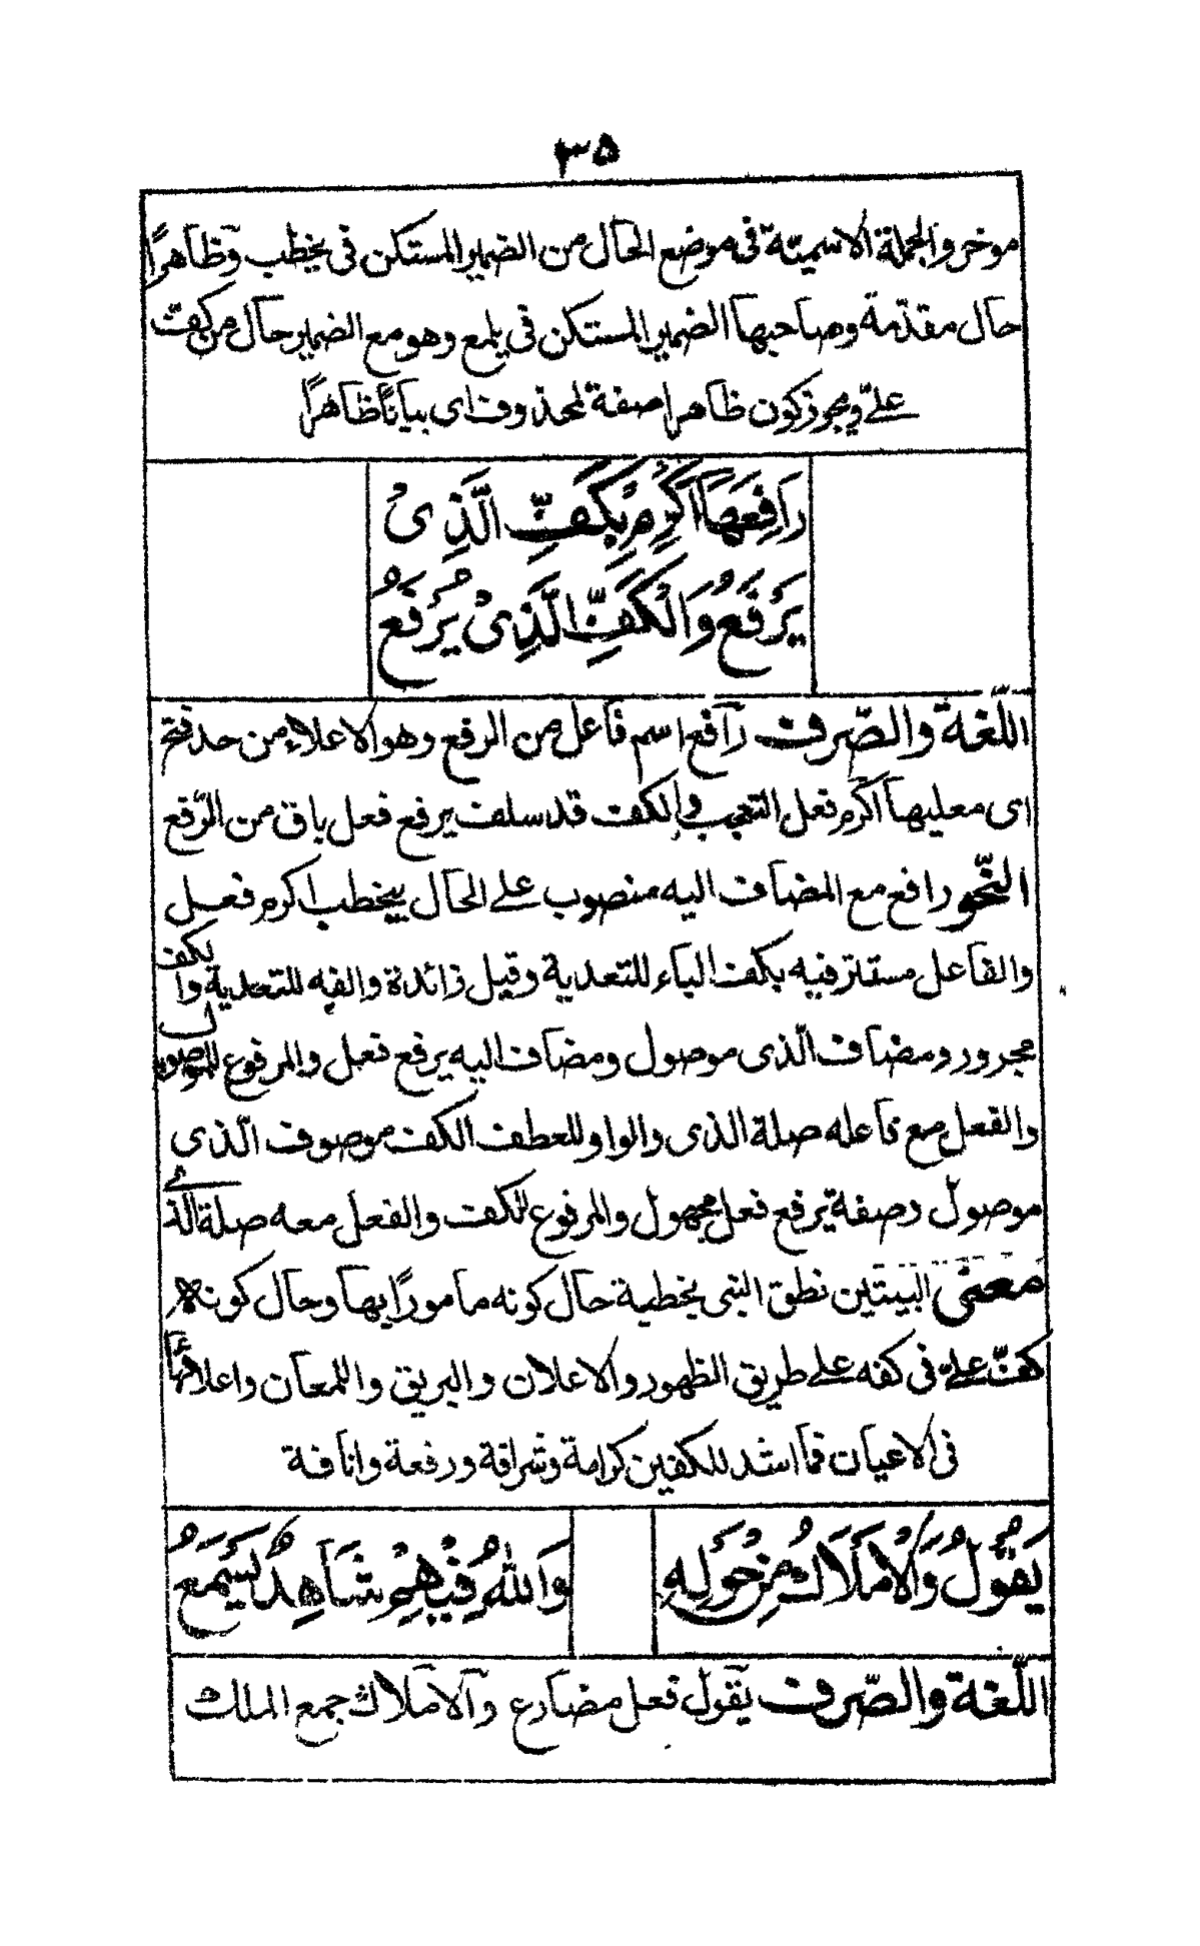 ٣٥
موخر والجملة الاسميّة فى موضع الحال من الضمير المستكن فى يخطب وظاهراً
حال مقدّمة وصاحبها الضمير المستكن فى يلمع وهو مع الضمير حال من كفّ
علىّ ويجوز كون ظاهرا صفة لمحذوف اى بياناً ظاهراً
رَافِعَهَا اَكْرِمْ بِكَفِّ الَّذِىْ
يَرْفَعُ وَالْكَفِّ الَّذِىْ يُرْفَعُ
اللّغة والصّرف رافع اسم فاعل من الرفع وهو الاعلاء من حد فتح
اى معليها اكرم فعل التعجب والكف قد سلف يرفع فعل باق من الرّفع
النّحو رافع مع المضاف اليه منصوب على الحال بيخطب اكرم فعل
والفاعل مستتر فيه بكف الباء للتعدية وقيل زائدة والفه للتعدية والكف
مجرور ومضاف الّذى موصول ومضاف اليه يرفع فعل والمرفوع للموصول
والفعل مع فاعله صلة الذى والواو للعطف الكف موصوف الّذى
موصول وصفة يرفع فعل مجهول والمرفوع للكف والفعل معه صلة الذى
معنى البيتين نطق النبى بخطبة حال كونه مامورًا بها وحال كون
كفّ علىّ فى كفه على طريق الظهور والاعلان والبريق واللمعان واعلائها
فى الاعيان فما اشد للكفين كرامة وشرافة ورفعة وانافة
يَقُوْلُ وَالْاَمْلَاكُ مِنْ حَوْلِهِ
وَاللهُ فِيْهِمْ شَاهِدٌ يَسْمَعُ
اللّغة والصّرف يقول فعل مضارع والاملاك جمع الملك